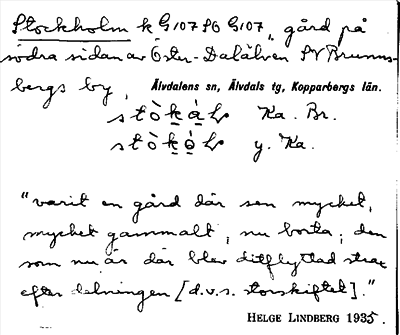 Stockholm k G 107 S6 G 107, gård på
södra sidan av Öster-Dalälven SV Brunns-
bergs by, Älvdalens sn, Älvdals tg, Kopparbergs län.
stò̀ḳàḷ Ka. Br.
stò̀ḳòḷ y. Ka.
"varit en gård där sen mycket,
mycket gammalt, nu borta; den
som nu är där blev ditflyttad strax
efter delningen [d.v.s. storskiftet]."
HELGE LINDBERG 1935.